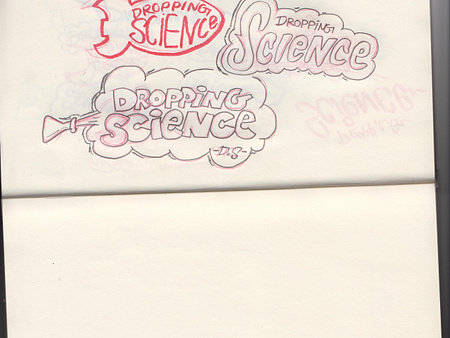 DROPPING
SCIENCE
DROPPING
SCIENCE
DROPPING
SCIENCE